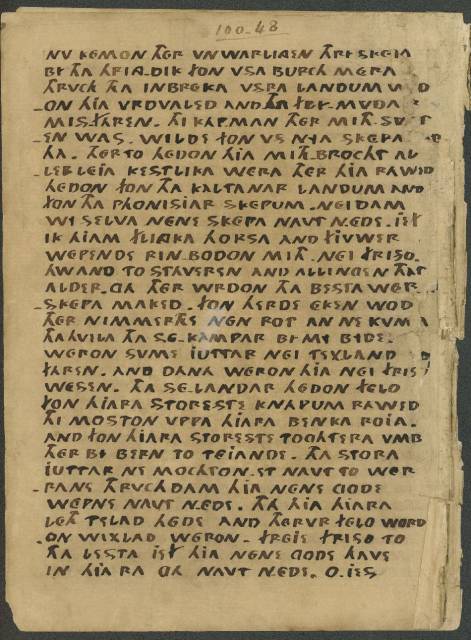 100-48
NV KEMON THER VNWARLINGEN THRI SKEPA
BI THA HRING-DIK FON VSA BURCH MERA
THRVCH THA INBREKA VSRA LANDUM WRD
ON HIA VRDVALED AND THA FLI-MVDA
MISFAREN. THI KAPMAN THER MITH SVS
EN WAS. WILDE FON VS NYA SKEPA
HA. THERTO HEDON HIA MITH BROCHT AL
LERLEIA KESTLIKA WERA THER HIA RAWED
HEDON FON THA KALTANAR LANDUM AND
FON THA PHONISIAR SKEPUM. NEIDAM
WI SELVA NENE SKEPA NAVT NEDE. IEF
IK HIAM FLINKA HORSA AND FIVWER
WEPENDE RINBODON MITH NEI FRISO.
HWAND TO STAVEREN AND ALLINGEN THAT
ALDER.GA THER WRDON THA BESTA WER
SKEPA MAKED. FON HERDE EKEN WOD
THER NIMMERTHE NEN ROT AN NE KVMTH
THAHWILA THA SE-KAMPAR BI MY BYDE.
WERON SVME IUTTAR NEI TEXLAND
FAREN. AND DANA WERON HIA NEI FRISO
WESEN. THA SE-LANDAR HEDON FELO
FON HIARA STORESTE KNAPUM RAWED
THI MOSTON VPPA HIARA BENKA ROIA.
AND FON HIARA STORESTE TOCHTERA VMB
THER BI BERN TO TEIANDE. THA STORA
IUTTAR NE MOCHTON.ET NAVT TO WER
RANE THRVCHDAM HIA NENE GODE
WEPNE NAVT NEDE. THA HIA HIARA
LETH TELAD HEDE AND THERVR FELO WORD
ON WIXLAD WERON. FREIE FRISO TO
THA LESTA IEF HIA NENE GODE HAVE
IN HIARA GA NAVT NEDE. O.IES